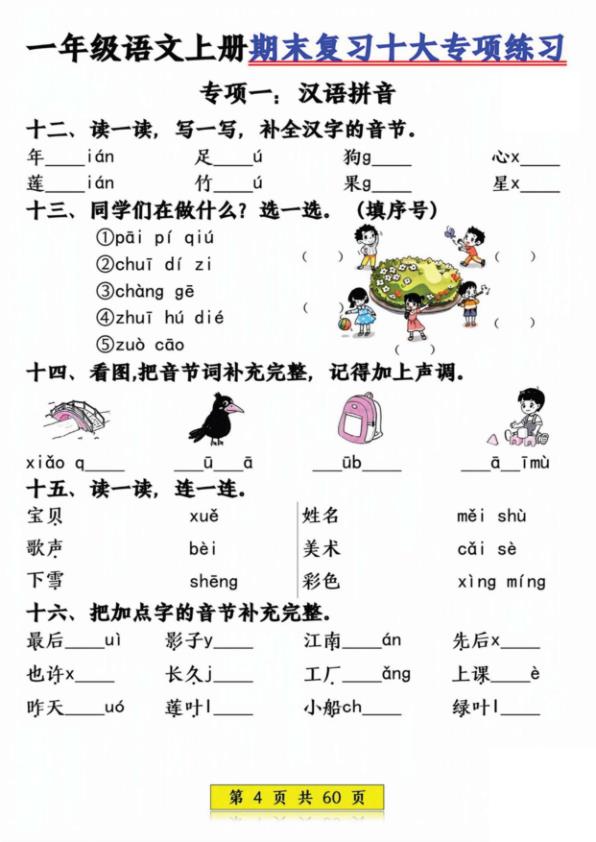 一年级语文上册期末复习十大专项练习
专项一：汉语拼音
十二、读一读，写一写，补全汉字的音节。
年____ián 足____ú 狗g____ 心x____
莲____ián 竹____ú 果g____ 星x____
十三、同学们在做什么？选一选。（填序号）
①pāi pí qiú
②chuī dí zi
③chàng gē
④zhuī hú dié
⑤zuò cāo
( ) ( )
( ) ( )
( )
十四、看图,把音节词补充完整，记得加上声调。
xiǎo q____ ___ū___ā ___ūb____ ___ā__īmù
十五、读一读，连一连。
宝贝 xuě 姓名 měi shù
歌声 bèi 美术 cǎi sè
下雪 shēng 彩色 xìng míng
十六、把加点字的音节补充完整。
最后____uì 影子y____ 江南____án 先后x____
也许x____ 长久j____ 工厂____ǎng 上课____è
昨天____uó 莲叶l____ 小船ch____ 绿叶l____
第 4 页 共 60 页